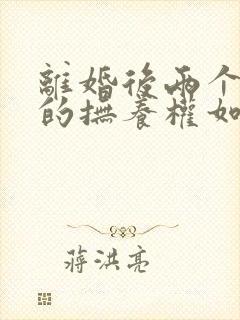 離婚後兩个
的撫養權如
蔣洪亮